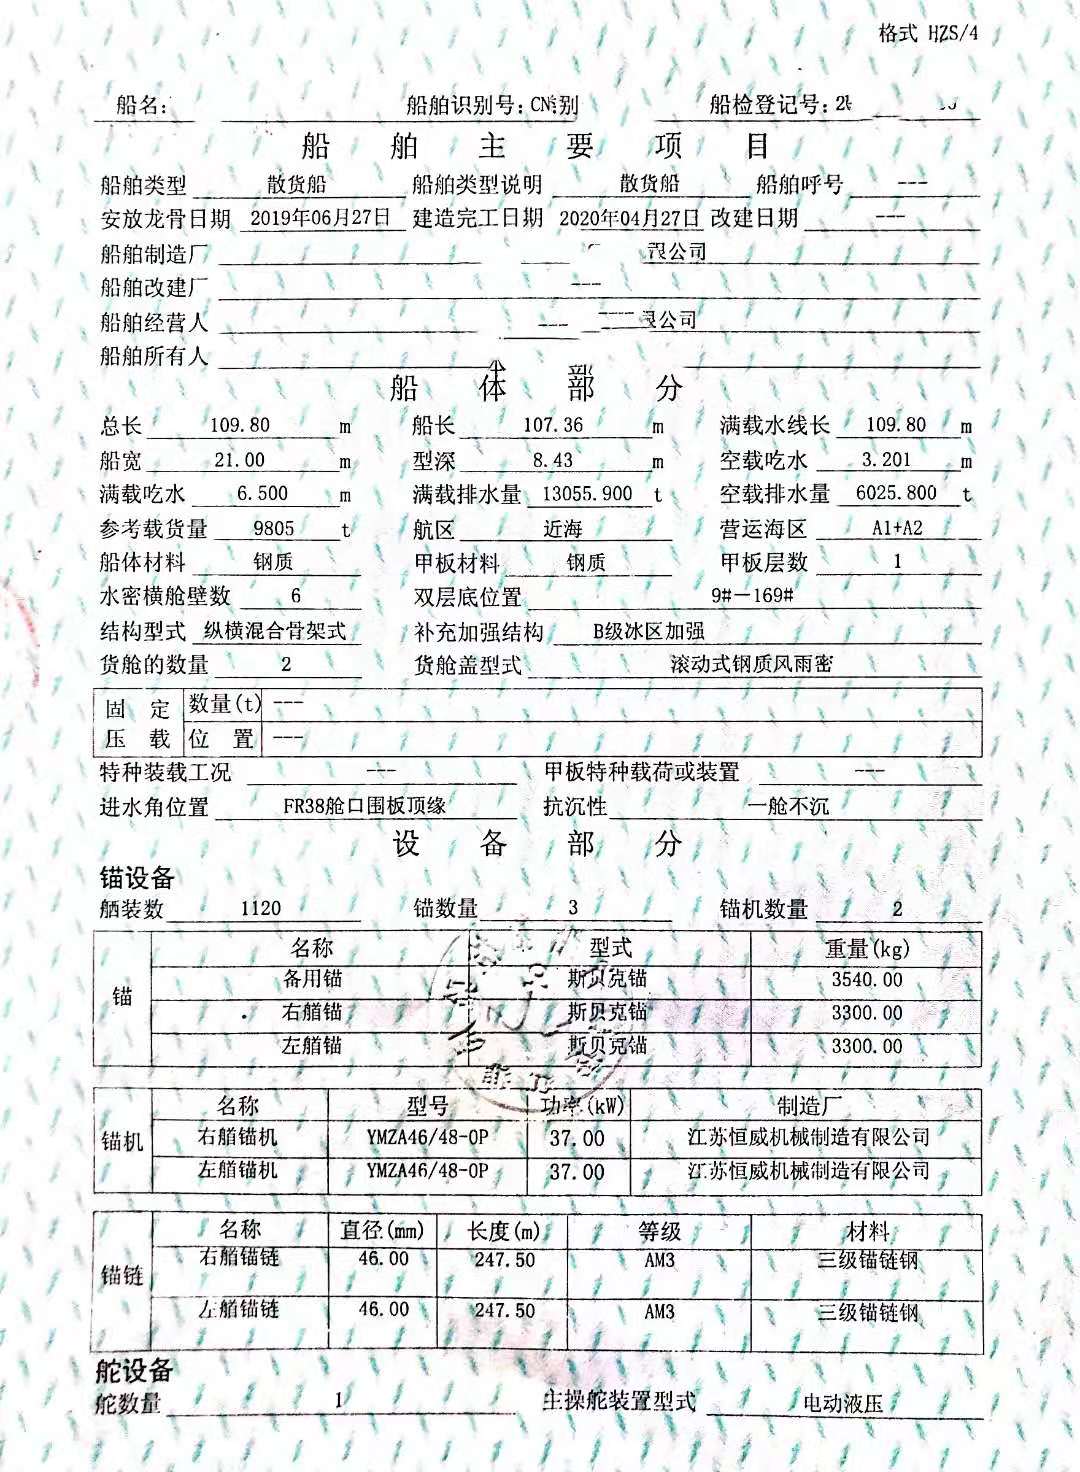 格式 HZS/4
船名: 船舶识别号: CN 船检登记号: 2
船 舶 主 要 项 目
船舶类型 散货船 船舶类型说明 散货船 船舶呼号 ---
安放龙骨日期 2019年06月27日 建造完工日期 2020年04月27日 改建日期 ---
船舶制造厂 限公司
船舶改建厂 ---
船舶经营人 --- 限公司
船舶所有人
船 体 部 分
总长 109.80 m 船长 107.36 m 满载水线长 109.80 m
船宽 21.00 m 型深 8.43 m 空载吃水 3.201 m
满载吃水 6.500 m 满载排水量 13055.900 t 空载排水量 6025.800 t
参考载货量 9805 t 航区 近海 营运海区 A1+A2
船体材料 钢质 甲板材料 钢质 甲板层数 1
水密横舱壁数 6 双层底位置 9#—169#
结构型式 纵横混合骨架式 补充加强结构 B级冰区加强
货舱的数量 2 货舱盖型式 滚动式钢质风雨密
固 定 压 载 数量(t) ---
位 置 ---
特种装载工况 --- 甲板特种载荷或装置 ---
进水角位置 FR38舱口围板顶缘 抗沉性 一舱不沉
设 备 部 分
锚设备
舾装数 1120 锚数量 3 锚机数量 2
锚 名称 型式 重量(kg)
备用锚 斯贝克锚 3540.00
右艏锚 斯贝克锚 3300.00
左艏锚 斯贝克锚 3300.00
锚机 名称 型号 功率(kW) 制造厂
右艏锚机 YMZA46/48-0P 37.00 江苏恒威机械制造有限公司
左艏锚机 YMZA46/48-0P 37.00 江苏恒威机械制造有限公司
锚链 名称 直径(mm) 长度(m) 等级 材料
右艏锚链 46.00 247.50 AM3 三级锚链钢
左艏锚链 46.00 247.50 AM3 三级锚链钢
舵设备
舵数量 1 主操舵装置型式 电动液压